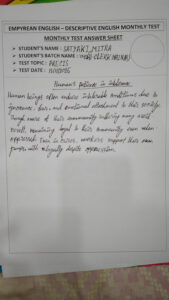 EMPYREAN ENGLISH – DESCRIPTIVE ENGLISH MONTHLY TEST
MONTHLY TEST ANSWER SHEET
➤ STUDENT'S NAME : SATYAKI MITRA
➤ STUDENT'S BATCH NAME : CLERK MAINS
➤ TEST TOPIC : PRECIS
➤ TEST DATE :
Human's patience in intolerance
Human beings often endure intolerable conditions due to
ignorance, fear, and emotional attachment to their society.
Though some of their community suffering may exist
overall, remaining loyal to their community even when
oppressed. Even in crises, workers support their own
group with integrity despite oppression.